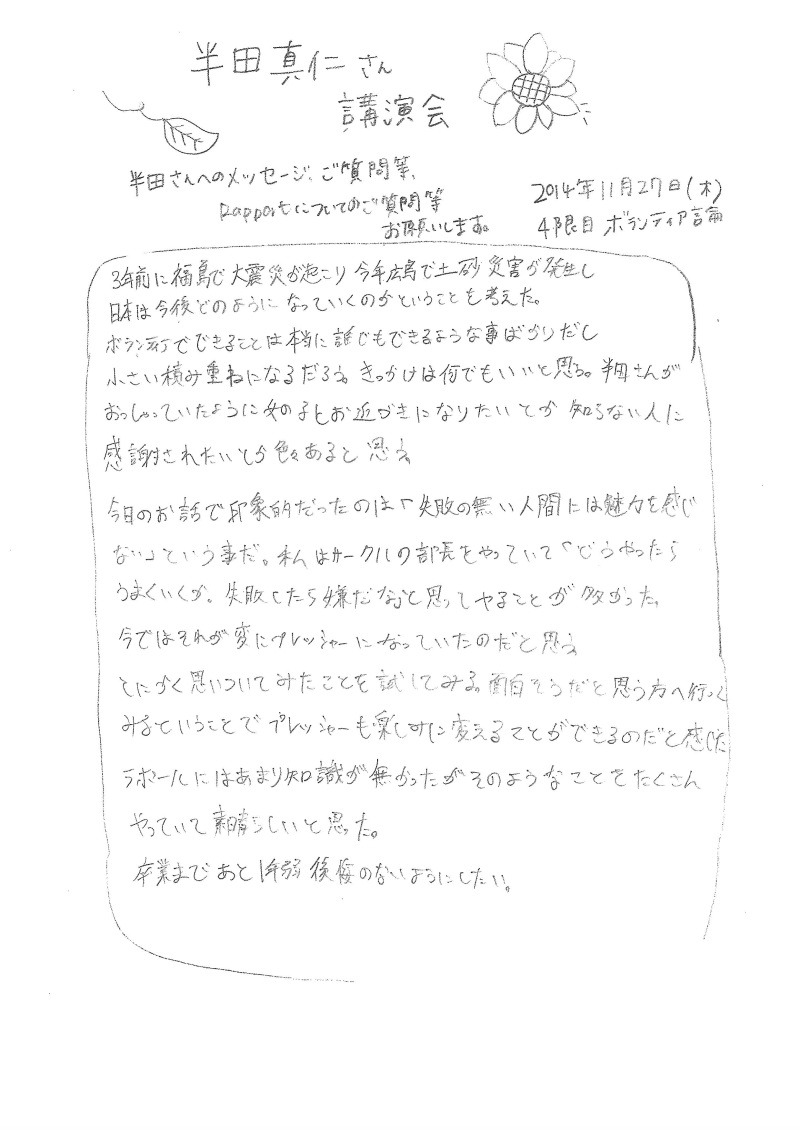 半田真仁さん
講演会
半田さんへのメッセージ、ご質問等、
Rapportについてのご質問等
お願いします。
2014年11月27日(木)
4限目 ボランティア言論
3年前に福島で大震災が起こり今年広島で土砂災害が発生し
日本は今後どのようになっていくのかということを考えた。
ボランティアでできることは本当に誰でもできるような事ばかりだし
小さい積み重ねになるだろう。きっかけは何でもいいと思う。半田さんが
おっしゃっていたように女の子とお近づきになりたいとか知らない人に
感謝されたいとか色々あると思う。
今日のお話で印象的だったのは「失敗の無い人間には魅力を感じ
ない」という事だ。私はサークルの部長をやっていて「どうやったら
うまくいくか。失敗したら嫌だな」と思ってやることが多かった。
今ではそれが変にプレッシャーになっていたのだと思う。
とにかく思いついてみたことを試してみる。面白そうだと思う方へ行って
みるということでプレッシャーも楽しみに変えることができるのだと感じた
ラポールにはあまり知識が無かったがそのようなことをたくさん
やっていて素晴らしいと思った。
卒業まであと1年弱後悔のないようにしたい。